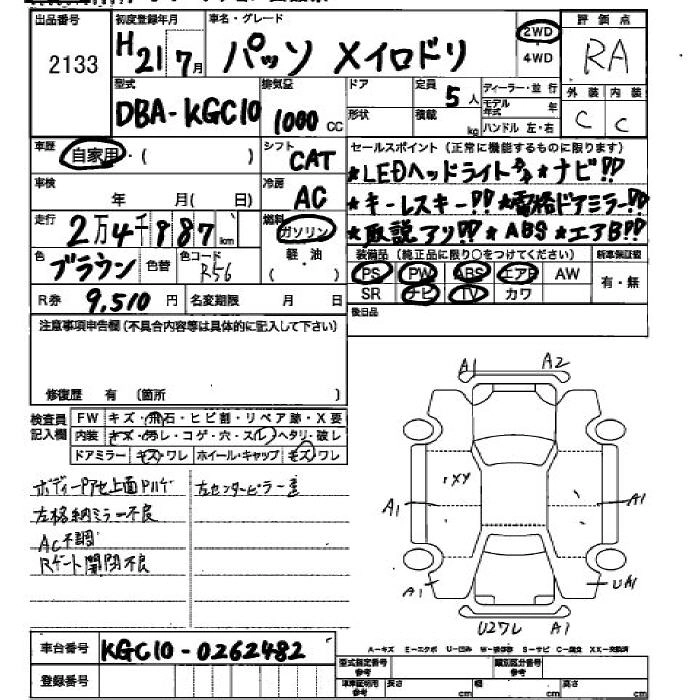 出品番号 初度登録年月 車名・グレード 2WD 4WD 評価点
2133 H21 7月 パッソ Xイロドリ RA
型式 排気量 ドア 定員 5人 ディーラー・並行
DBA-KGC10 1000 CC 形状 積載 kg モデル年式 年 外装 内装
ハンドル 左・右 C C
車歴 自家用・( ) シフト CAT セールスポイント(正常に機能するものに限ります)
★LEDヘッドライト ★ナビ!!
車検 年 月( 日) 冷房 AC ★キーレスキー!! ★電格ドアミラー!!
走行 2万4千987km 燃料 ガソリン ★取説アリ!! ★ABS ★エアB!!
色 ブラウン 色替 色コード R56 軽・油 ( ) 装備品(純正品に限り○をつけてください) 新車保証書
PS PW ABS エアB AW 有・無
R券 9,510円 名変期限 月 日 SR ナビ TV カワ
注意事項申告欄(不具合内容等は具体的に記入して下さい) 後日品
修復歴 有 (箇所 )
A1 A2
検査員記入欄 FW キズ・飛石・ヒビ割・リペア跡・X要
内装 キズ・汚レ・コゲ・穴・スレ・ヘタリ・破レ
ドアミラー キズ・ワレ ホイール・キャップ キズ・ワレ
XY
A1 A1
左センターピラー歪
左格納ミラー不良
AC不調
Rゲート開閉不良
A1 UA1
U27L A1
車台番号 KGC10-0262482
A-キズ E-エクボ U-凹み W-補修跡 S-サビ C-腐食 XX-交換済
登録番号 型式指定番号 参考 類別区分番号 参考
車庫証明用 参考 長さ cm 幅 cm 高さ cm